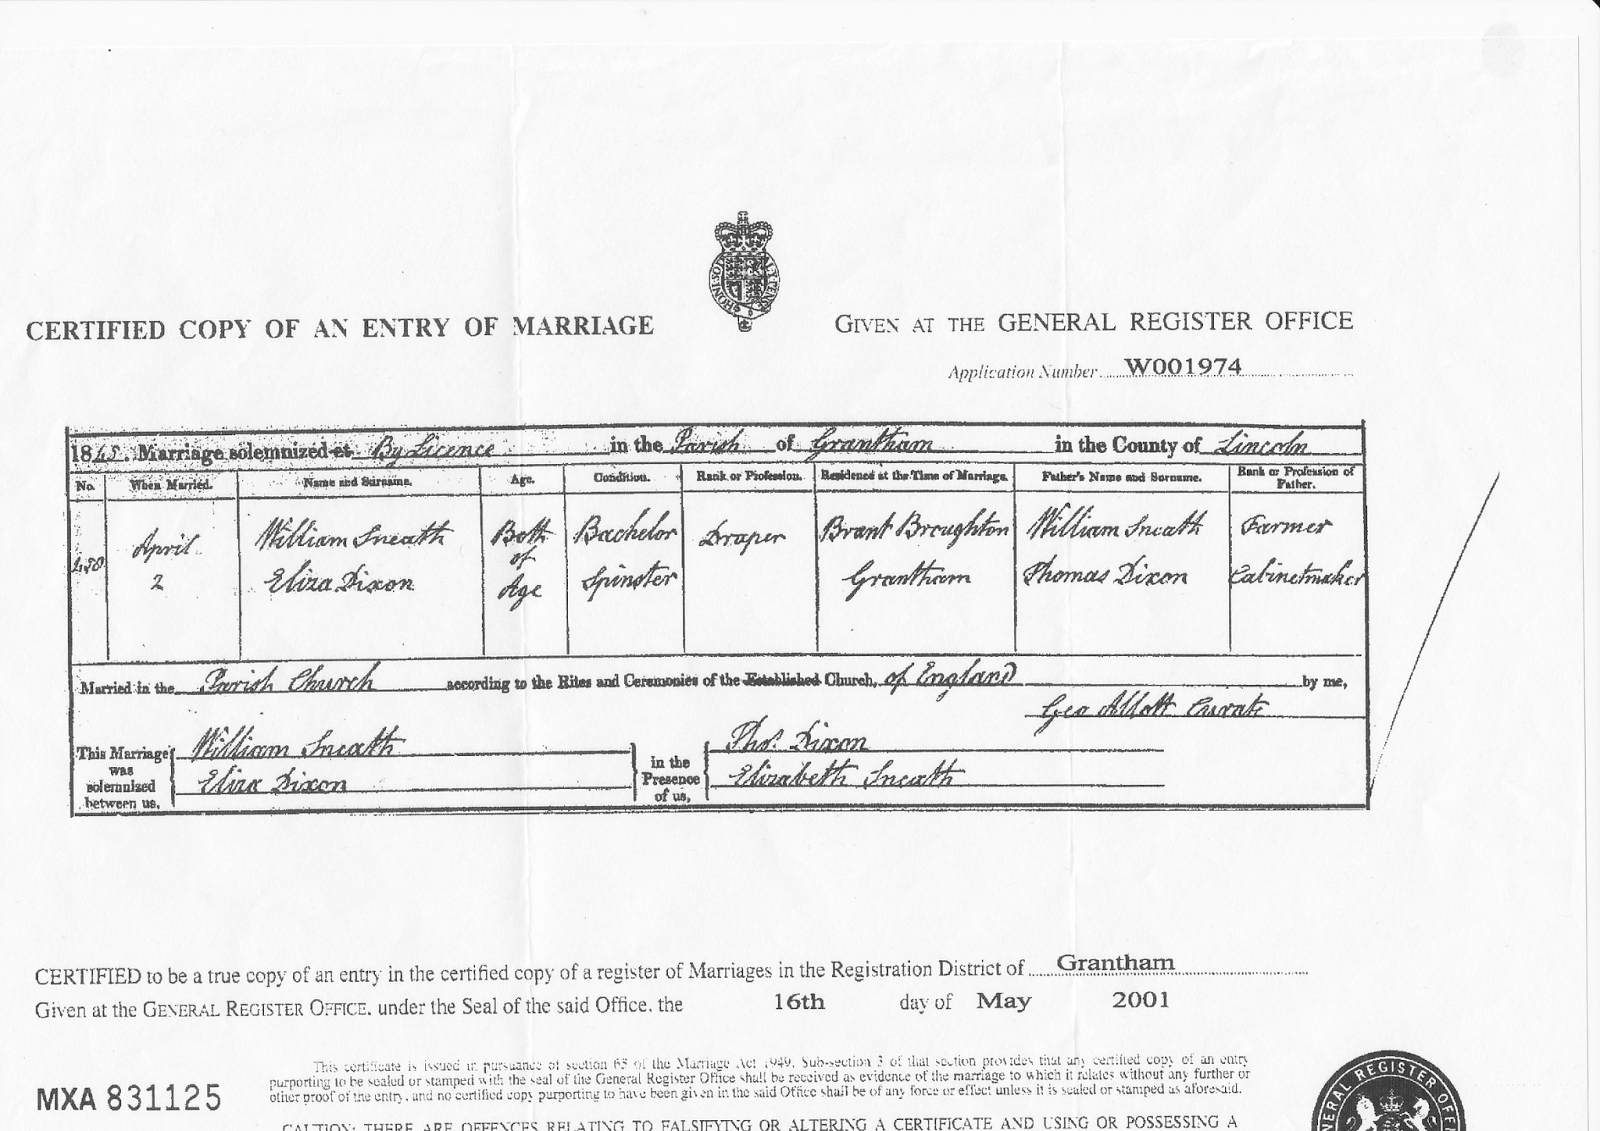 CERTIFIED COPY OF AN ENTRY OF MARRIAGE
GIVEN AT THE GENERAL REGISTER OFFICE
Application Number W001974
1845 Marriage solemnized at By Licence in the Parish of Grantham in the County of Lincoln
No. When Married. Name and Surname. Age. Condition. Rank or Profession. Residence at the Time of Marriage. Father's Name and Surname. Rank or Profession of Father.
438 April 2 William Sneath Both of Age Bachelor Draper Brant Broughton William Sneath Farmer
Eliza Dixon Spinster Grantham Thomas Dixon Cabinetmaker
Married in the Parish Church according to the Rites and Ceremonies of the Established Church, of England by me,
Geo Curate
This Marriage was solemnized between us, William Sneath in the Presence of us, Thos. Dixon
Eliza Dixon Elizabeth Sneath
CERTIFIED to be a true copy of an entry in the certified copy of a register of Marriages in the Registration District of Grantham
Given at the GENERAL REGISTER OFFICE, under the Seal of the said Office, the 16th day of May 2001
This certificate is issued in pursuance of section 65 of the Marriage Act 1949. Sub-section 3 of that section provides that any certified copy of an entry
purporting to be sealed or stamped with the seal of the General Register Office shall be received as evidence of the marriage to which it relates without any further or
other proof of the entry, and no certified copy purporting to have been given in the said Office shall be of any force or effect unless it is sealed or stamped as aforesaid.
MXA 831125
CAUTION: THERE ARE OFFENCES RELATING TO FALSIFYING OR ALTERING A CERTIFICATE AND USING OR POSSESSING A
GENERAL REGISTER